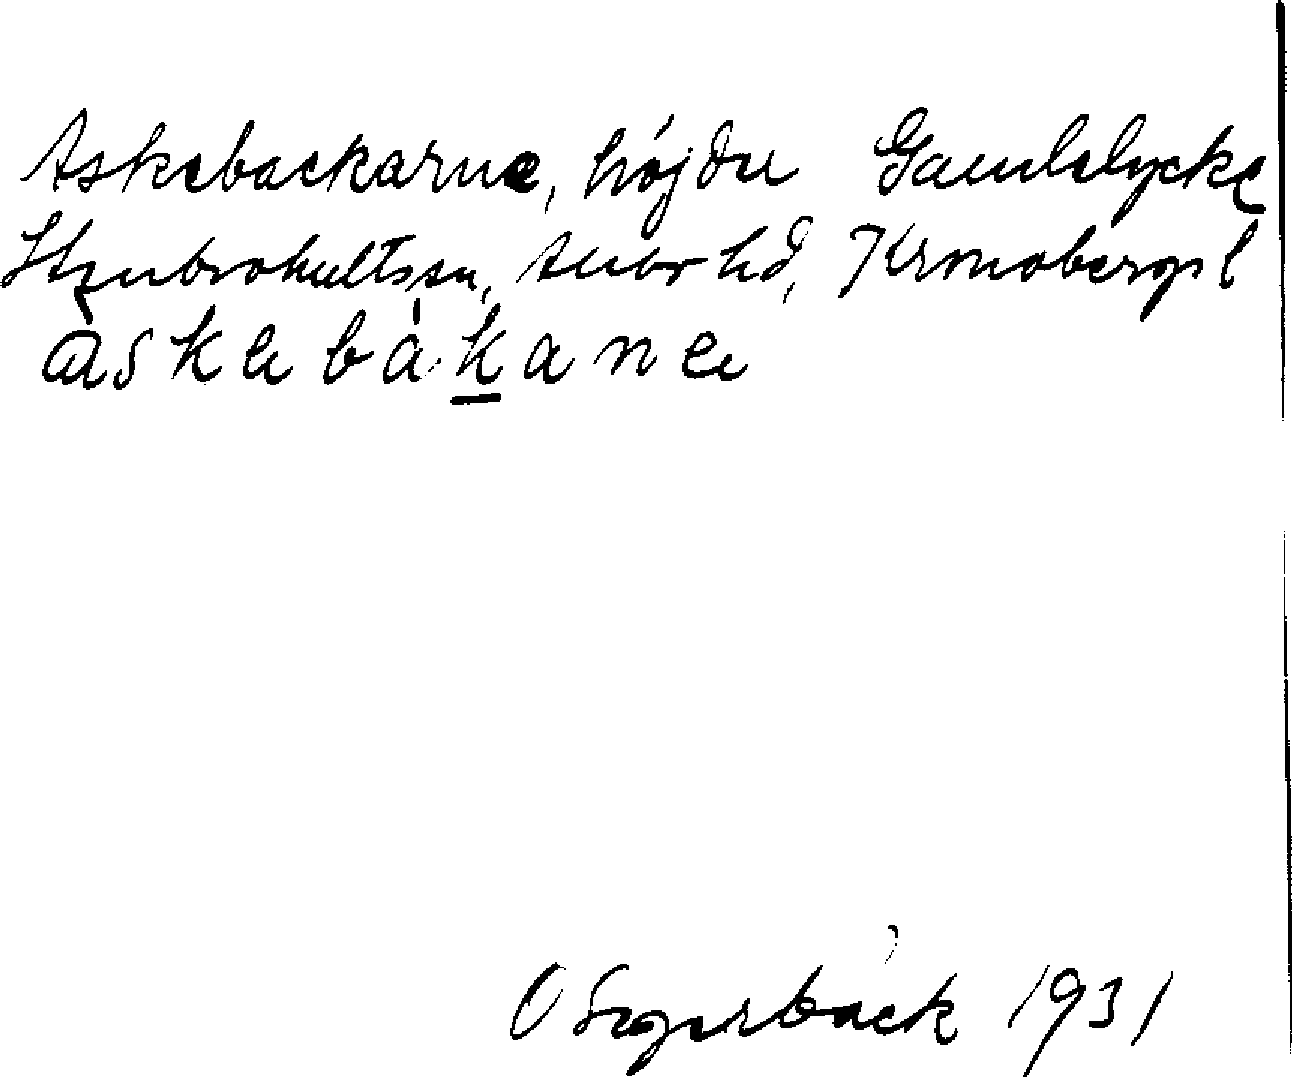 Askebackarne, höjder Gamlelycke
Stenbrohultssn, Allbo hd, Kronobergs l
askebakane
O Segerbäck 1931